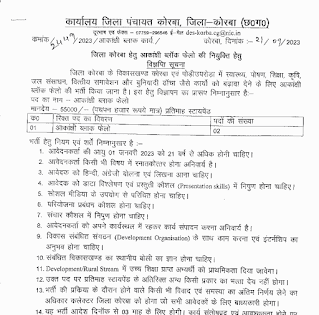 कार्यालय जिला पंचायत कोरबा, जिला–कोरबा (छ0ग0)
दूरभाष एवं फैक्स – 07759-
क्रमांक /2023/आकांक्षी ब्लाक कार्य/ कोरबा, दिनांक 21/09/2023
जिला कोरबा हेतु आकांक्षी ब्लॉक फेलो की नियुक्ति हेतु
विज्ञप्ति सूचना
जिला कोरबा के विकासखण्ड कोरबा एवं पोड़ीउपरोडा में स्वास्थ्य, पोषण, शिक्षा, कृषि,
जल संसाधन, वित्तीय समावेशन और बुनियादी ढाँचे जैसे कार्यो को बढ़ावा देने के लिए आकांक्षी
ब्लॉक फेलो की भर्ती किया जाना है। इस हेतु विज्ञापन का प्रारूप निम्नानुसार है:-
पद का नाम – आकांक्षी ब्लाक फेलो
मानदेय – 55000/- (पचपन हजार रूपये मात्र) प्रतिमाह स्टायपेंड
क0 रिक्त पद का विवरण पदों की संख्या
01 आकांक्षी ब्लॉक फेलो 02
भर्ती हेतु नियम एवं शर्तें निम्नानुसार है:-
1. आवेदनकर्ता की आयु 01 जनवरी 2023 को 21 वर्ष से अधिक होनी चाहिए।
2. आवेदनकर्ता किसी भी विषय में स्नातकोत्तर होना अनिवार्य है।
3. आवेदक को हिन्दी, अंग्रेजी बोलना एवं लिखना आना चाहिए।
4. आवेदक को डाटा विश्लेषण एवं प्रस्तुती कौशल (Presentation skills) में निपुण होना चाहिए।
5. सोशल मीडिया के उपयोग से परिचित होना चाहिए।
6. परियोजना प्रबंधन कौशल होना चाहिए।
7. संचार कौशल में निपुण होना चाहिए।
8. आवेदनकर्ता को अपने कार्यस्थल में रहकर कार्य संपादन करना अनिवार्य है।
9. विकास संबंधित संगठन (Development Organisation) के साथ काम करना एवं इंटर्नशिप का
अनुभव होना चाहिए।
10. संबंधित विकासखण्ड का स्थानीय बोली का ज्ञान होना चाहिए।
11. Development/Rural Stream में उच्च शिक्षा प्राप्त अभ्यर्थी को प्राथमिकता दिया जावेगा।
12. उक्त पद पर प्रतिमाह स्टायपेंड के अतिरिक्त अन्य किसी प्रकार का भत्ता देय नहीं होगा।
13. भर्ती की प्रक्रिया के दौरान होने वाले किसी भी विवाद एवं समस्या का अंतिम निर्णय लेने का
अधिकार कलेक्टर जिला कोरबा को होगा जो सभी आवेदकों के लिए बाध्यकारी होगा।
14. यह भर्ती आदेश दिनांक से 03 माह के लिए होगा। कार्य संतोषप्रद एवं आवश्यकता होने पर